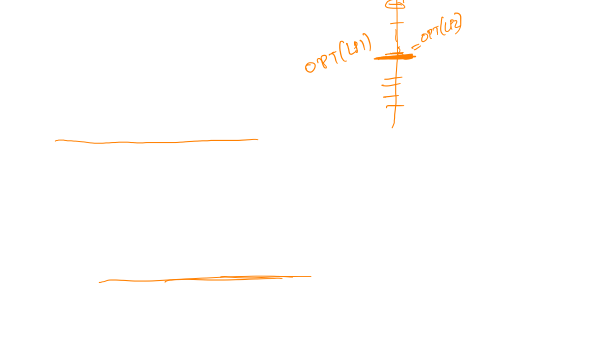 OPT(LP1)
= OPT(LP2)